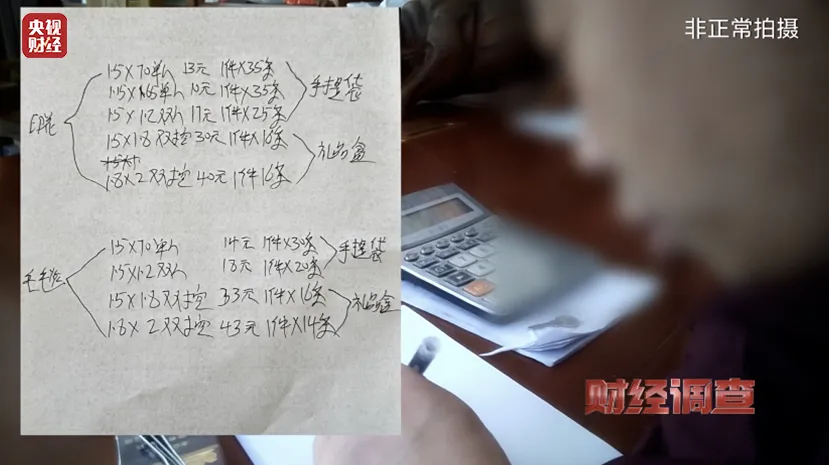 央视
财经
非正常拍摄
印花
1.5×70单人 13元 1件×35条
1.15×1.65单人 10元 1件×35条
1.5×1.2双人 17元 1件×25条
手提袋
1.5×1.8双控 30元 1件×16条
1.8×2双控 40元 1件16条
礼品盒
1.5×70单人 14元 1件×30条
1.5×1.2双人 18元 1件×20条
手提袋
1.5×1.8双控 33元 1件×16条
1.8×2双控 43元 1件×14条
礼品盒
财经调查